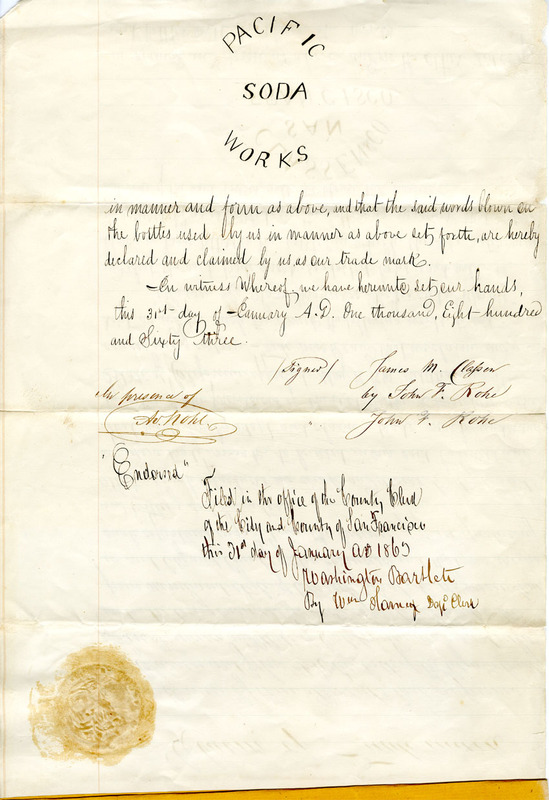 PACIFIC
SODA
WORKS
in manner and form as above, and that the said words blown on
the bottles used by us in manner as above set forth, are hereby
declared and claimed by us, as our trade mark.
In witness Whereof, we have hereunto set our hands,
this 31st day of January A.D. One thousand, Eight hundred
and Sixty three.
(Signed) James M. Classen
In presence of by John F. Rohe
A. Rohe John F. Rohe
"Endorsed"
Filed in the office of the County Clerk
of the City and County of San Francisco
this 31st day of January AD 1863
Washington Bartlett
By Wm Harney Depy Clerk